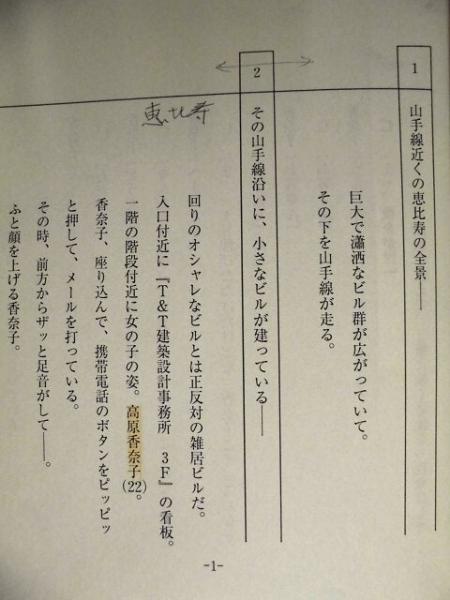 1
山手線近くの恵比寿の全景――
巨大で瀟洒なビル群が広がっていて。
その下を山手線が走る。
2
その山手線沿いに、小さなビルが建っている――
恵比寿
回りのオシャレなビルとは正反対の雑居ビルだ。
入口付近に『T&T建築設計事務所 3F』の看板。
一階の階段付近に女の子の姿。高原香奈子(22)。
香奈子、座り込んで、携帯電話のボタンをピッピッ
と押して、メールを打っている。
その時、前方からザッと足音がして――。
ふと顔を上げる香奈子。
-1-